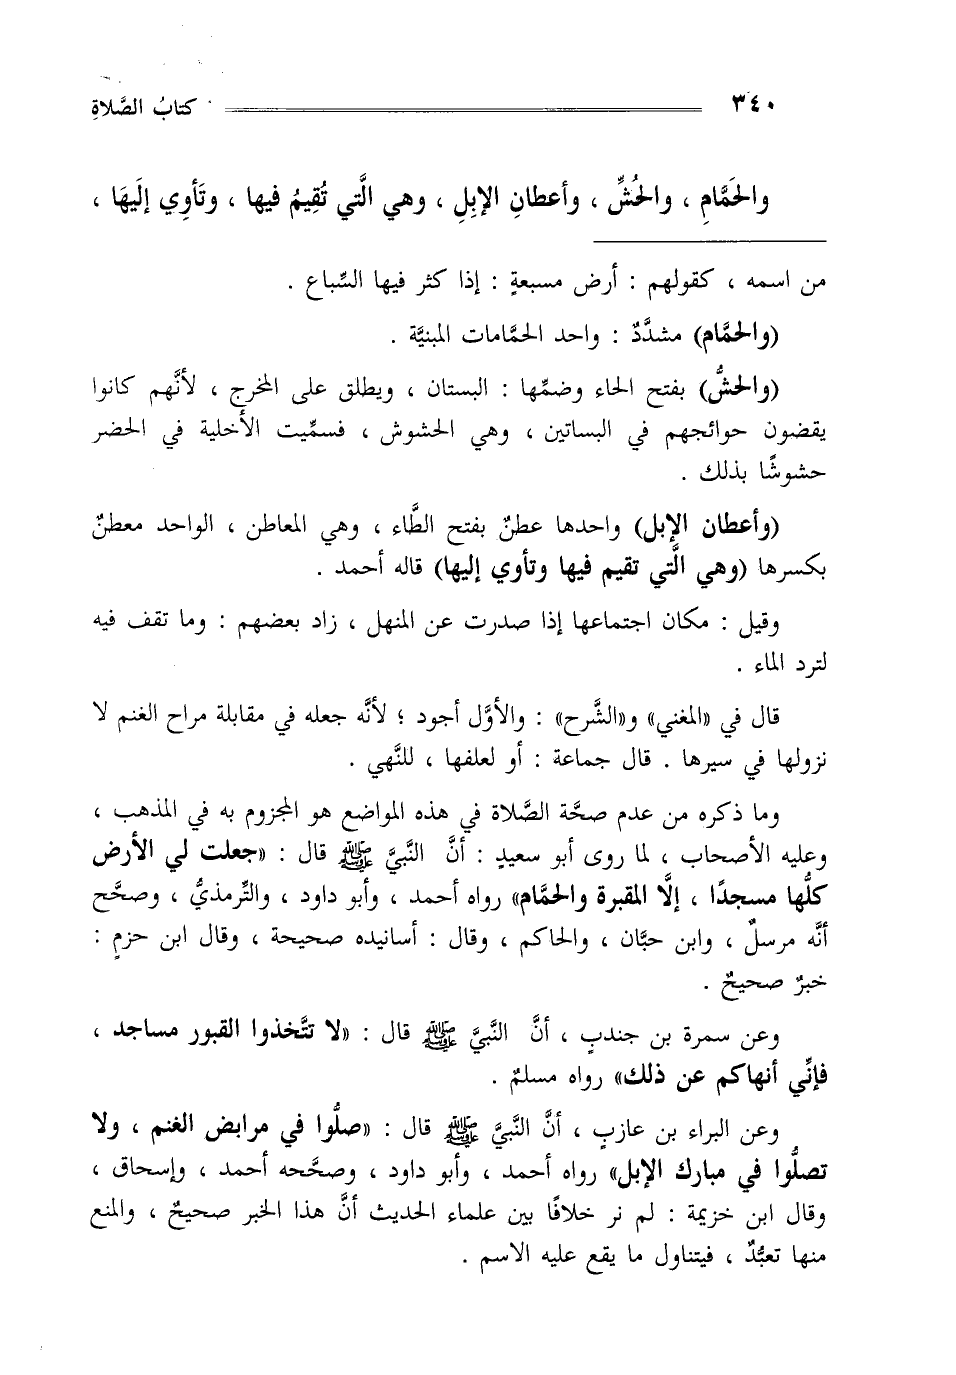 ٣٤٠ كتابُ الصَّلاةِ
والحَمَّامِ ، والحُشِّ ، وأعطانِ الإبِلِ ، وهي الَّتي تُقِيمُ فيها ، وتَأوِي إلَيهَا ،
من اسمه ، كقولهم : أرض مسبعةٍ : إذا كثر فيها السِّباع .
(والحمَّام) مشدَّدٌ : واحد الحمَّامات المبنيَّة .
(والحشُّ) بفتح الحاء وضمِّها : البستان ، ويطلق على المخرج ، لأنَّهم كانوا
يقضون حوائجهم في البساتين ، وهي الحشوش ، فسمِّيت الأخلية في الحضر
حشوشًا بذلك .
(وأعطان الإبل) واحدها عطنٌ بفتح الطَّاء ، وهي المعاطن ، الواحد معطنٌ
بكسرها (وهي الَّتي تقيم فيها وتأوي إليها) قاله أحمد .
وقيل : مكان اجتماعها إذا صدرت عن المنهل ، زاد بعضهم : وما تقف فيه
لترد الماء .
قال في «المغني» و«الشَّرح» : والأوَّل أجود ؛ لأنَّه جعله في مقابلة مراح الغنم لا
نزولها في سيرها . قال جماعة : أو لعلفها ، للنَّهي .
وما ذكره من عدم صحَّة الصَّلاة في هذه المواضع هو المجزوم به في المذهب ،
وعليه الأصحاب ، لما روى أبو سعيدٍ : أنَّ النَّبيَّ ﷺ قال : «جعلت لي الأرض
كلُّها مسجدًا ، إلَّا المقبرة والحمَّام» رواه أحمد ، وأبو داود ، والتِّرمذيُّ ، وصحَّح
أنَّه مرسلٌ ، وابن حبَّان ، والحاكم ، وقال : أسانيده صحيحة ، وقال ابن حزمٍ :
خبرٌ صحيحٌ .
وعن سمرة بن جندبٍ ، أنَّ النَّبيَّ ﷺ قال : «لا تتَّخذوا القبور مساجد ،
فإنِّي أنهاكم عن ذلك» رواه مسلمٌ .
وعن البراء بن عازبٍ ، أنَّ النَّبيَّ ﷺ قال : «صلُّوا في مرابض الغنم ، ولا
تصلُّوا في مبارك الإبل» رواه أحمد ، وأبو داود ، وصحَّحه أحمد ، وإسحاق ،
وقال ابن خزيمة : لم نر خلافًا بين علماء الحديث أنَّ هذا الخبر صحيحٌ ، والمنع
منها تعبُّدٌ ، فيتناول ما يقع عليه الاسم .